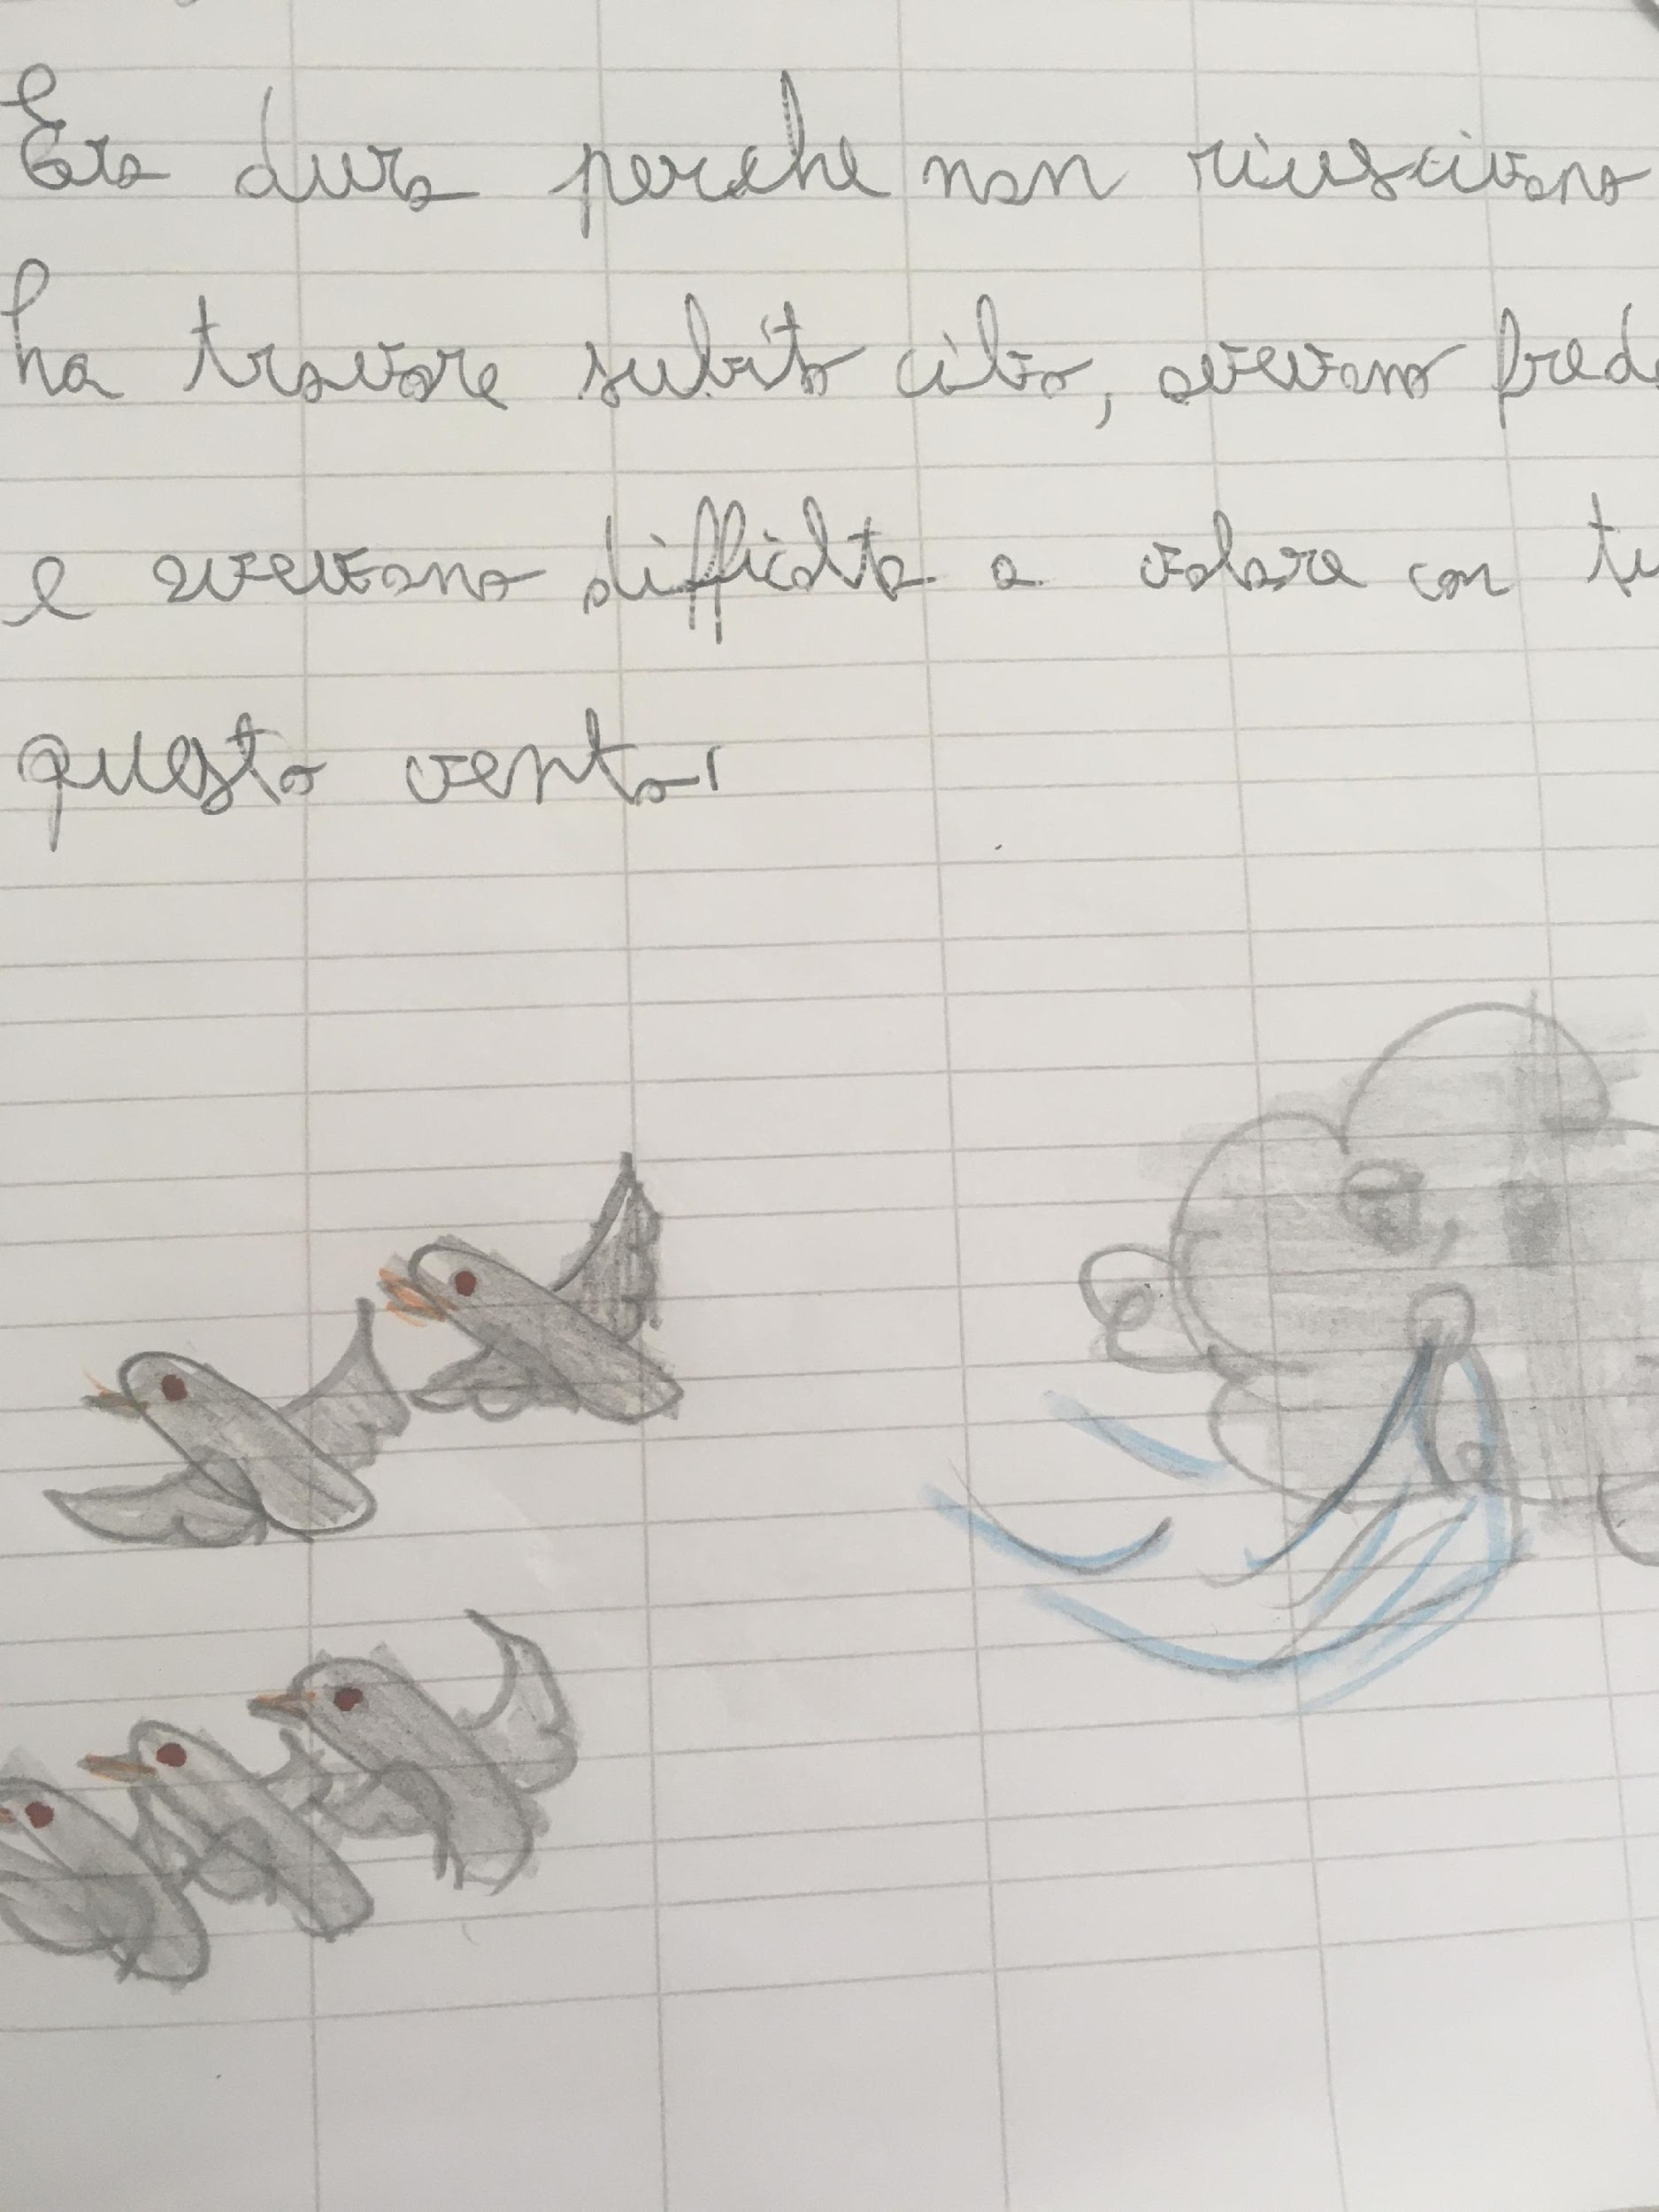 Era dura perche non riuscivano
ha trovare subito cibo, avevano fredo
e avevano difficolta a volare con tu
questo vento.